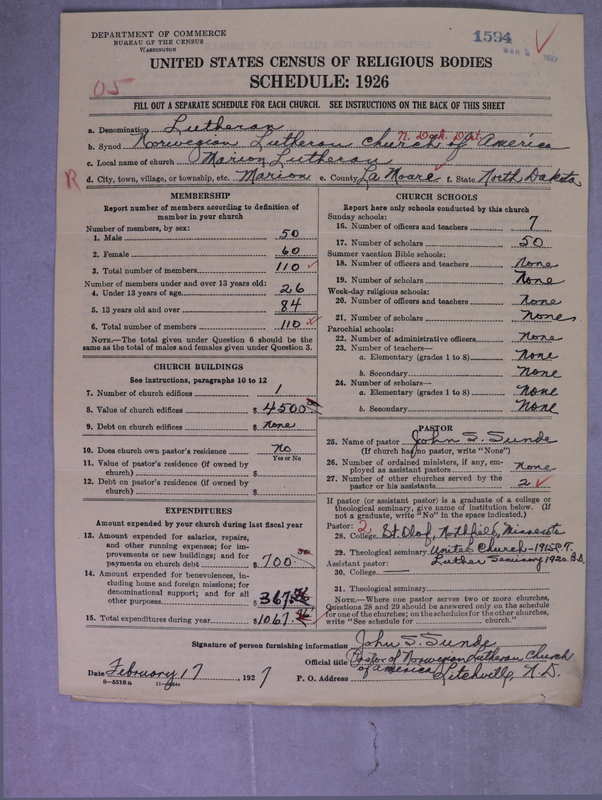 DEPARTMENT OF COMMERCE
BUREAU OF THE CENSUS
WASHINGTON
1594
MAR
UNITED STATES CENSUS OF RELIGIOUS BODIES
SCHEDULE: 1926
05
FILL OUT A SEPARATE SCHEDULE FOR EACH CHURCH. SEE INSTRUCTIONS ON THE BACK OF THIS SHEET
a. Denomination Lutheran
N. Dak. Dist.
b. Synod Norwegian Lutheran Church of America
c. Local name of church Marion Lutheran
R d. City, town, village, or township, etc. Marion e. County La Moure f. State North Dakota
MEMBERSHIP
Report number of members according to definition of
member in your church
Number of members, by sex:
1. Male 50
2. Female 60
3. Total number of members 110
Number of members under and over 13 years old:
4. Under 13 years of age 26
5. 13 years old and over 84
6. Total number of members 110
NOTE.—The total given under Question 6 should be
same as the total of males and females given under Question 3.
CHURCH BUILDINGS
See instructions, paragraphs 10 to 12
7. Number of church edifices 1
8. Value of church edifices $ 4500
9. Debt on church edifices $ None
10. Does church own pastor's residence? No
Yes or No
11. Value of pastor's residence (if owned by
church) $
12. Debt on pastor's residence (if owned by
church) $
EXPENDITURES
Amount expended by your church during last fiscal year
13. Amount expended for salaries, repairs,
and other running expenses; for im-
provements or new buildings; and for
payments on church debt $ 700.00
14. Amount expended for benevolences, in-
cluding home and foreign missions; for
denominational support; and for all
other purposes $ 367.
15. Total expenditures during year $ 1067.
CHURCH SCHOOLS
Report here only schools conducted by this church
Sunday schools:
16. Number of officers and teachers 7
17. Number of scholars 50
Summer vacation Bible schools:
18. Number of officers and teachers None
19. Number of scholars None
Week-day religious schools:
20. Number of officers and teachers None
21. Number of scholars None
Parochial schools:
22. Number of administrative officers None
23. Number of teachers—
a. Elementary (grades 1 to 8) None
b. Secondary None
24. Number of scholars—
a. Elementary (grades 1 to 8) None
b. Secondary None
PASTOR
25. Name of pastor John S. Sunde
(If church has no pastor, write "None")
26. Number of ordained ministers, if any, em-
ployed as assistant pastors None
27. Number of other churches served by the
pastor or his assistants 2
If pastor (or assistant pastor) is a graduate of a college or
theological seminary, give name of institution below. (If
not a graduate, write "No" in the space indicated.)
Pastor: 2
28. College St Olaf, Northfield, Minnesota
29. Theological seminary United Church - 1915 C.T.
Luther Seminary 1920 B.D.
Assistant pastor:
30. College
31. Theological seminary
NOTE.—Where one pastor serves two or more churches,
Questions 28 and 29 should be answered only on the schedule
for one of the churches; on the schedules for the other churches,
write "See schedule for church."
Signature of person furnishing information John S. Sunde
Official title Pastor of Norwegian Lutheran Church
of America
Date February 17, 1927 P. O. Address Litchville, N.D.
8—5518a